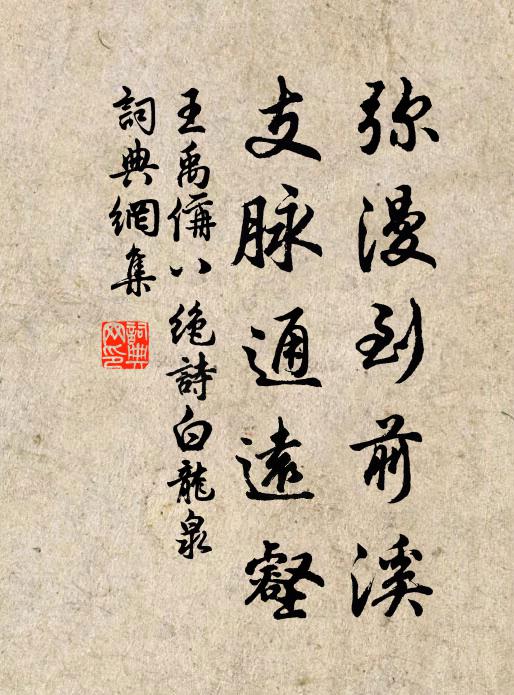 弥漫到前溪
支脉通遠壑
王禹偁八绝詩白龍泉
詞典網集
詞典網印